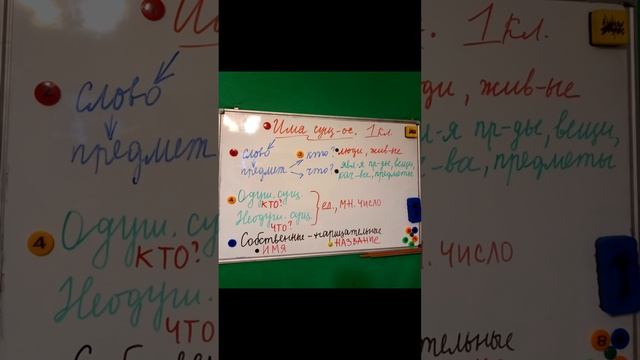 Имя сущ-ое. 1 кл.
слово кто? люди, жив-ые
предмет что? явл-я пр-ды, вещи,
кач-ва, предметы
Одуш. сущ.
КТО?
ед., мн. число
Неодуш. сущ.
ЧТО?
Собственные - нарицательные
ИМЯ НАЗВАНИЕ